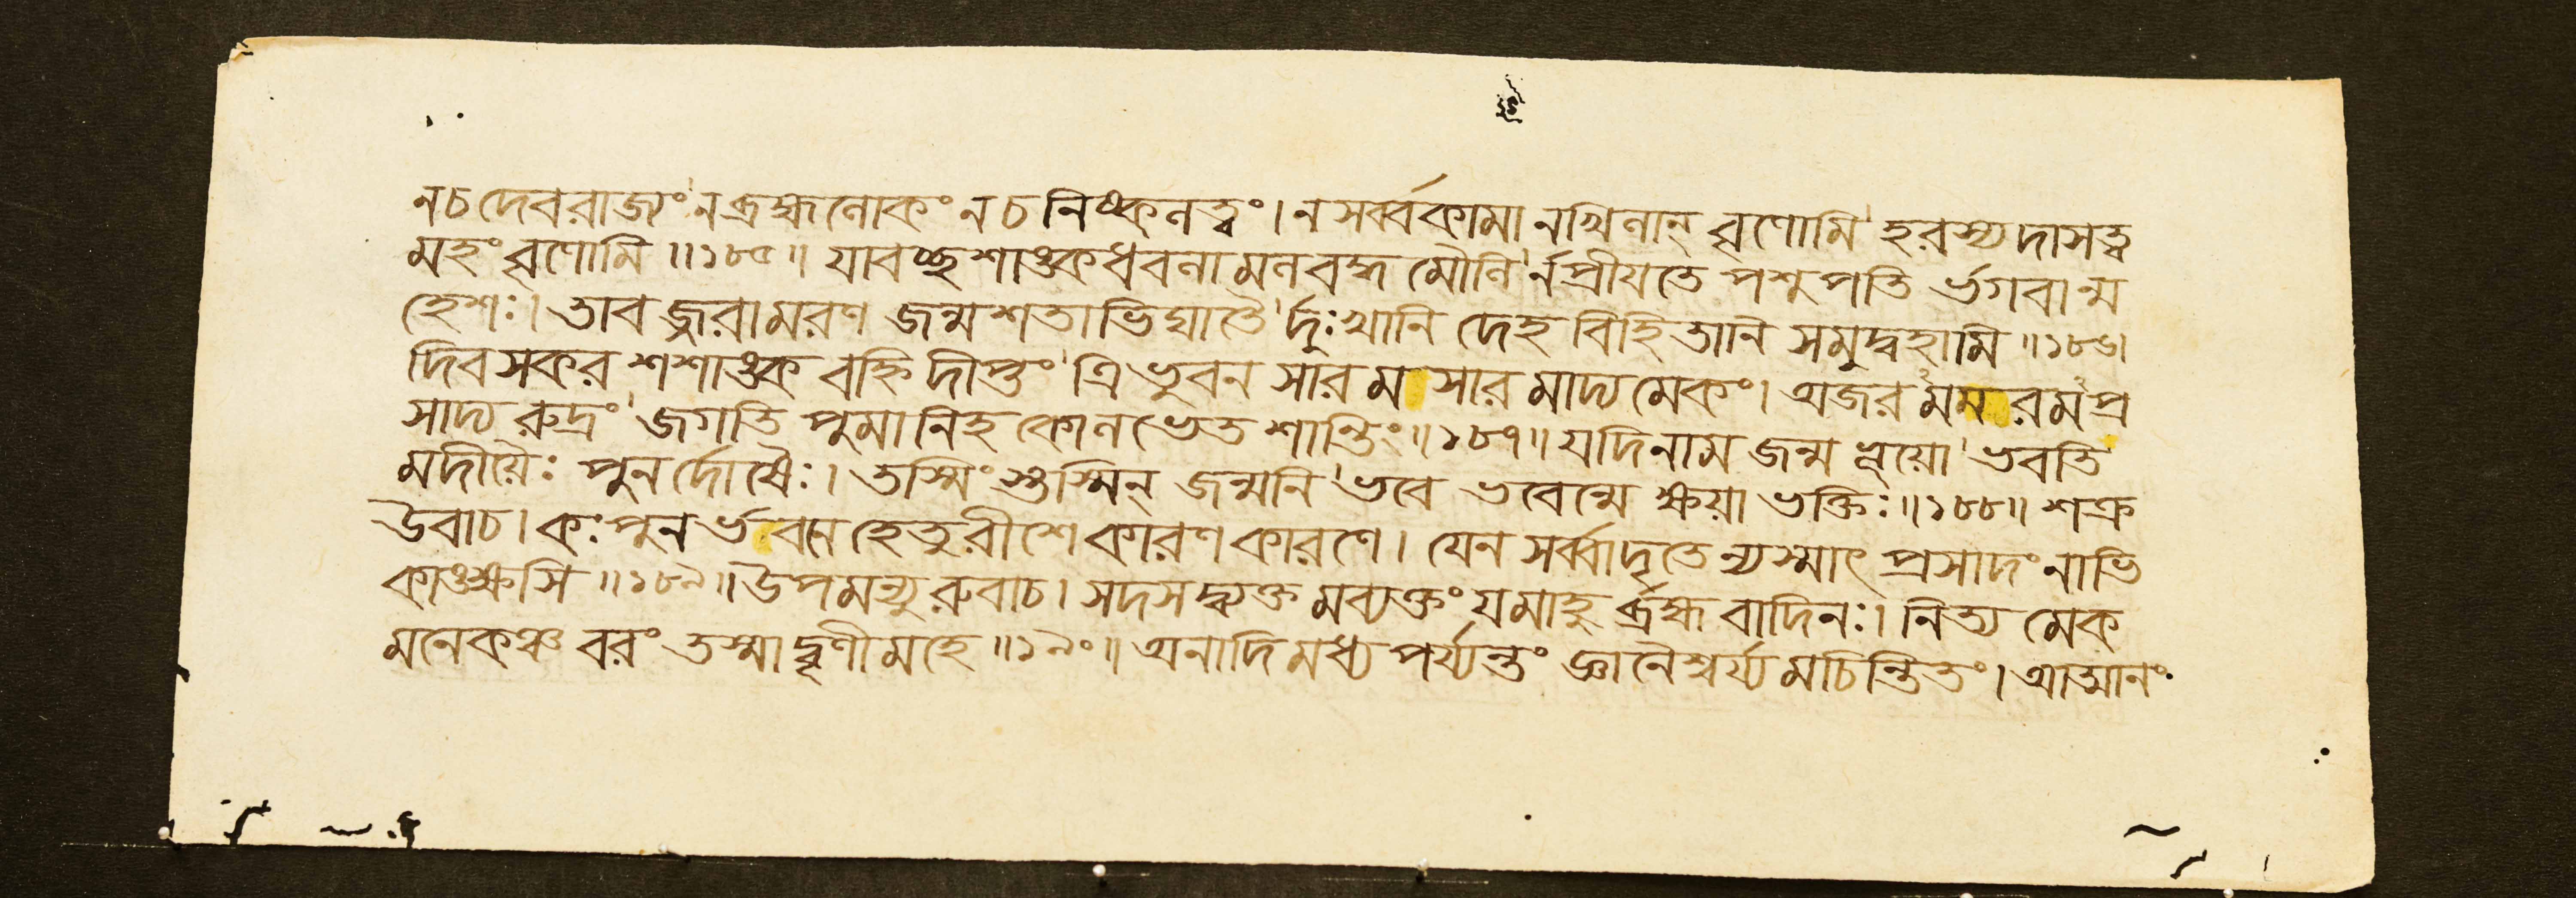 ন চ দেবরাজ্যং ন ব্রহ্মলোকং ন চ নিষ্কলত্বং। ন সর্ব্বকামানখিলান্ বৃণোমি হরস্য দাসত্ব
মহং বৃণোমি॥১৮৫॥ যাবচ্ছশাঙ্কধবলামলবহ্মমৌলি র্ন প্রীয়তে পশুপতি র্ভগবান্ম
হেশঃ। তাবজ্জরামরণ জন্মশতাভিঘাতৈ র্দুঃখানি দেহ বিহিতানি সমুদ্বহামি॥১৮৬।
দিবসকর শশাঙ্ক বহ্নি দীপ্তং ত্রিভুবন সারম সার মাদ্য মেকং। অজর মম রম প্র
সাদ্য রুদ্রং জগতি পুমানিহ কো লভেত শান্তিং॥১৮৭॥ যদি নাম জন্ম ভূয়ো ভবতি
মদীয়ৈঃ পুনর্দোষৈঃ। তস্মিংস্তস্মিন্ জন্মনি ভবে ভবেন্মে ক্ষয়া ভক্তিঃ॥১৮৮॥ শক্র
উবাচ। কঃ পুনর্ভবন হেতুরীশে কারণকারণে। যেন সর্ব্বাদৃতে ন্যস্মাৎ প্রসাদং নাভি
কাঙ্ক্ষসি॥১৮৯॥ উপমন্যুরুবাচ। সদসদ্ব্যক্ত মব্যক্তং যমাহু র্ব্রহ্মবাদিনঃ। নিত্য মেক
মনেকঞ্চ বরং তস্মাদ্বৃণীমহে॥১৯০॥ অনাদিমধ্যপর্য্যন্তং জ্ঞানৈশ্বর্য্যমচিন্তিতং। আত্মানং